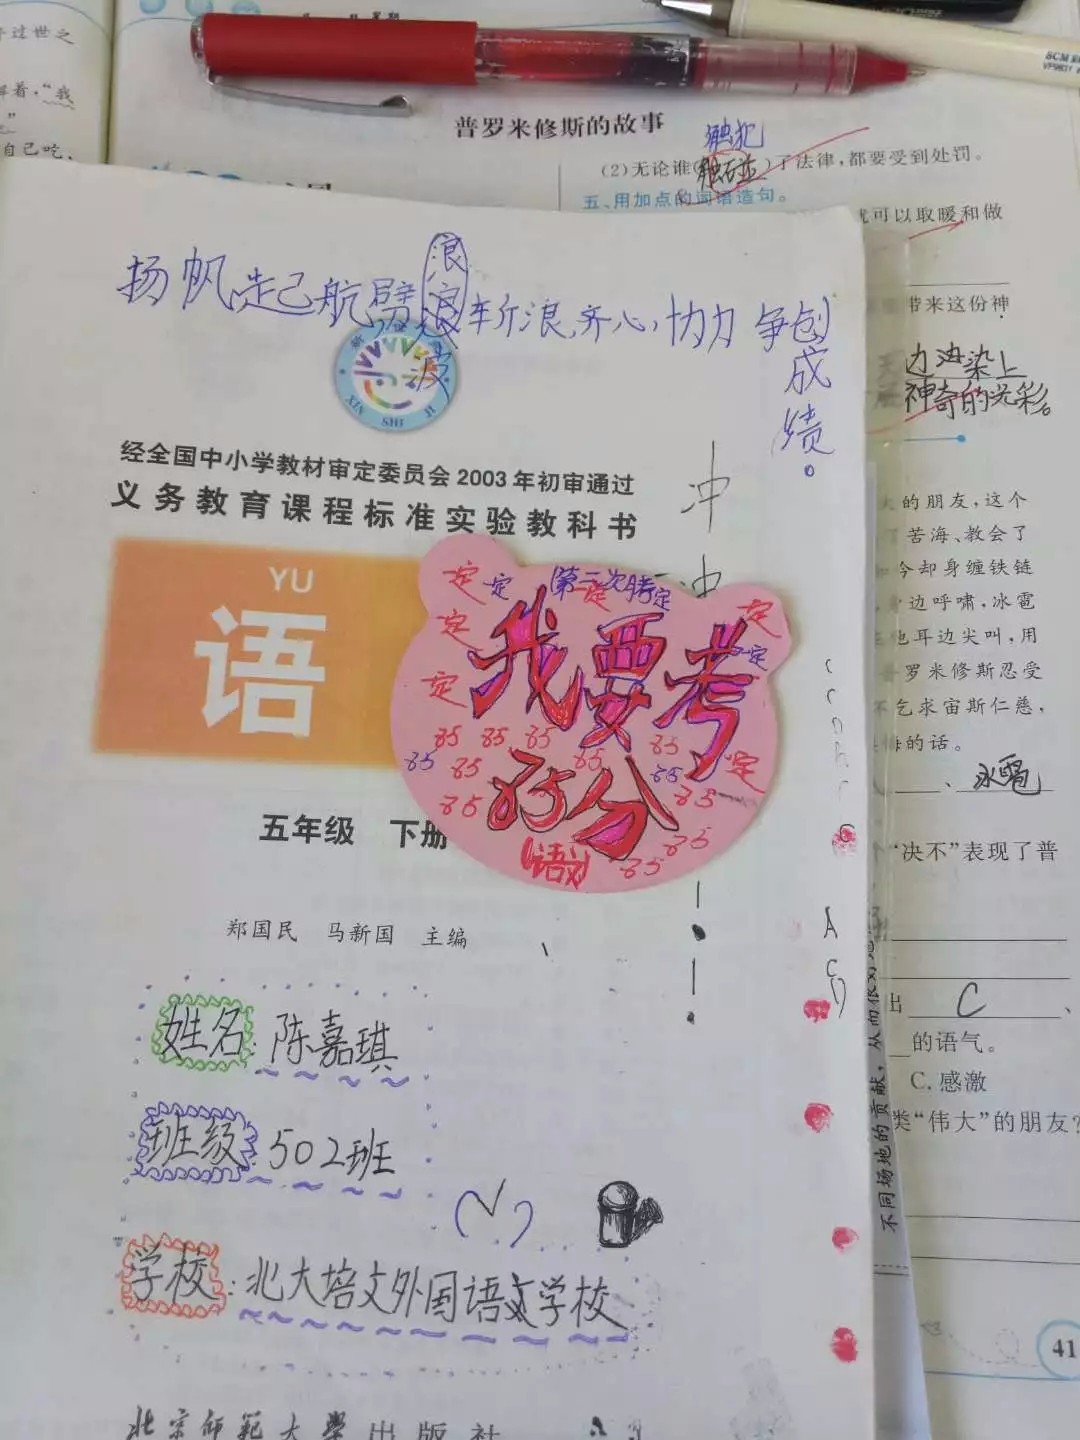 于过世之
解着，“我
”
自己吃，
普罗米修斯的故事
触犯
(2)无论谁(触碰)了法律，都要受到处罚。
五、用加点的词语造句。
就可以取暖和做
带来这份神
边油染上
神奇的光彩。
SCM
扬帆起己航劈浪斩浪，齐心，协力争创
浪
波
成
绩。
新世纪
XIN SHI JI
经全国中小学教材审定委员会2003年初审通过
义务教育课程标准实验教科书
冲
冲
YU
语
第二次月考
定 定 定 定
定 定
定 定
定 定
我要考
85 85 85 85
85 85 85 85
85分
85 85
85 85
(语文)
五年级 下册
郑国民 马新国 主编
姓名：陈嘉琪
班级：502班
学校：北大培文外国语文学校
北京师范大学出版社
A
C
大的朋友，这个
苦海、教会了
今却身缠铁链
身边呼啸，冰雹
他耳边尖叫，用
普罗米修斯忍受
不乞求宙斯仁慈，
悔的话。
、冰雹
“决不”表现了普
出 C 、
的语气。
C.感激
类“伟大”的朋友？
不同场地的贡献，从而
41